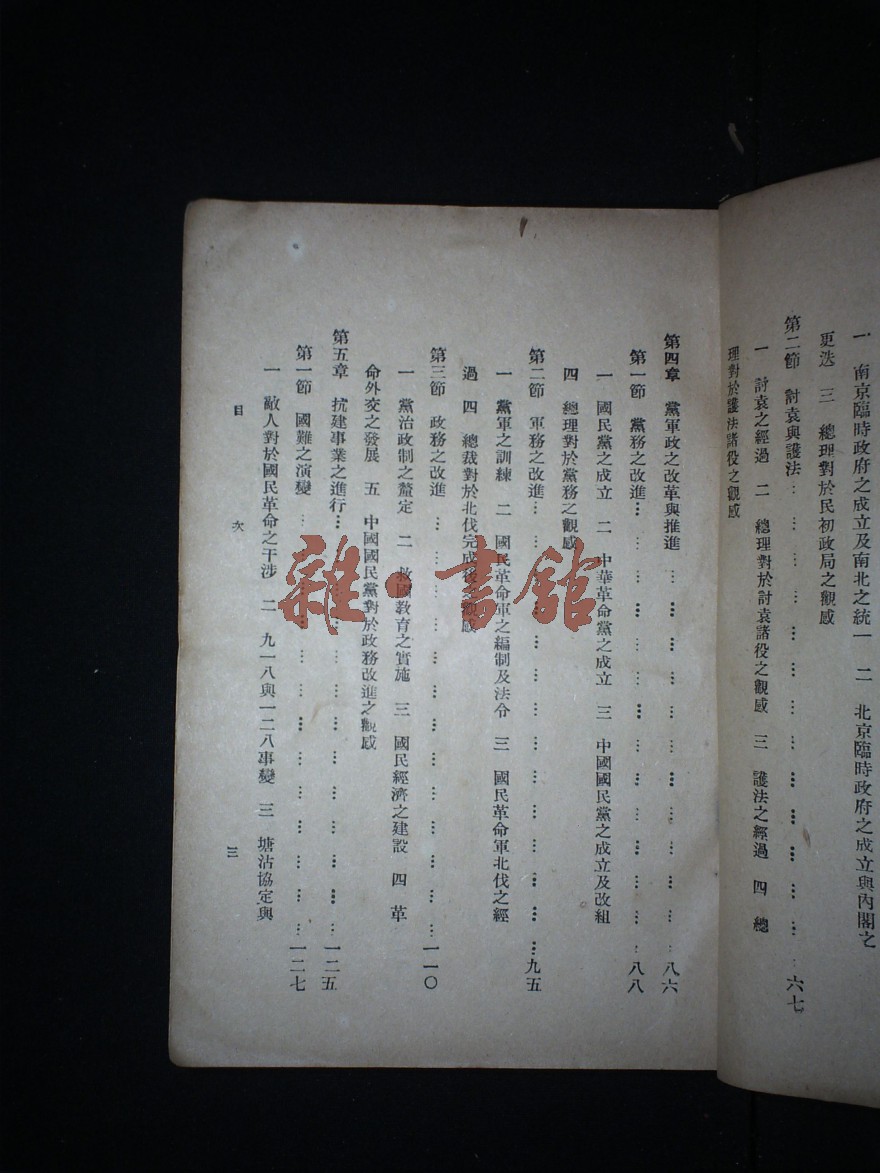 一 南京臨時政府之成立及南北之統一 二 北京臨時政府之成立與內閣之
更迭 三 總理對於民初政局之觀感
第二節 討袁與護法……………………六七
一 討袁之經過 二 總理對於討袁諸役之觀感 三 護法之經過 四 總
理對於護法諸役之觀感
第四章 黨軍政之改革與推進……………………八六
第一節 黨務之改進……………………八八
一 國民黨之成立 二 中華革命黨之成立 三 中國國民黨之成立及改組
四 總理對於黨務之觀感
第二節 軍務之改進……………………九五
一 黨軍之訓練 二 國民革命軍之編制及法令 三 國民革命軍北伐之經
過 四 總裁對於北伐完成後之觀感
第三節 政務之改進……………………一一〇
一 黨治政制之釐定 二 救國教育之實施 三 國民經濟之建設 四 革
命外交之發展 五 中國國民黨對於政務改進之觀感
第五章 抗建事業之進行……………………一二五
第一節 國難之演變……………………一二七
一 敵人對於國民革命之干涉 二 九一八與一二八事變 三 塘沽協定與
目 次 三
雜·書館